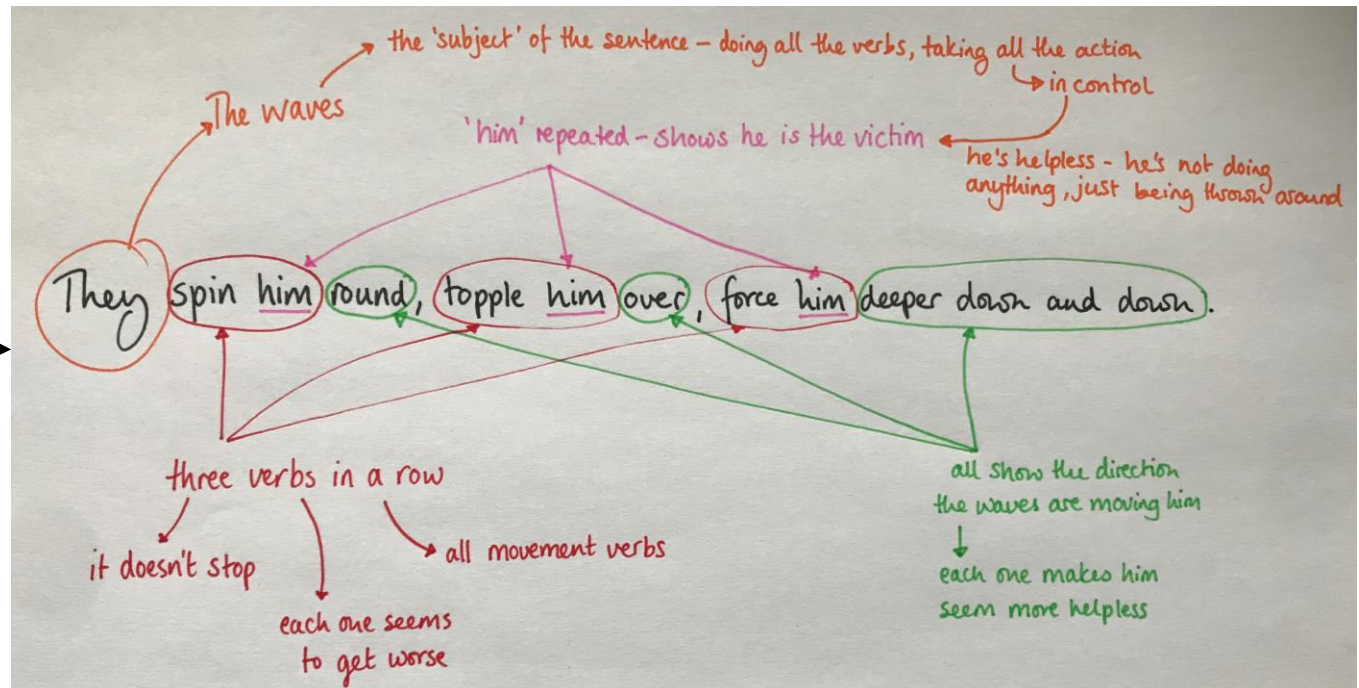 the 'subject' of the sentence – doing all the verbs, taking all the action
in control
The waves
'him' repeated – shows he is the victim
he's helpless – he's not doing
anything, just being thrown around
They spin him round, topple him over, force him deeper down and down.
three verbs in a row
it doesn't stop
each one seems
to get worse
all movement verbs
all show the direction
the waves are moving him
each one makes him
seem more helpless